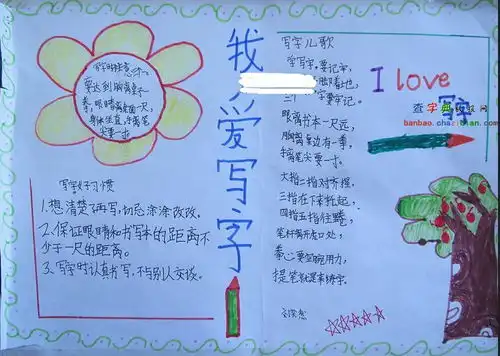 我爱写字
要达到胸离桌一
拳，眼睛离纸面一尺，
身体坐直，手离笔
尖要一寸
写字好习惯
1.想清楚再写，切忌涂涂改改。
2.保证眼睛和书写本的距离不
少于一尺的距离。
3.写字时认真书写，不与别人交谈。
写字儿歌
学写字，要记牢，
字要牢记。
眼离书本一尺远，
胸离桌边有一拳，
手离笔尖要一寸。
大指二指对齐捏，
三指在下来托起，
四指五指往里
笔杆离开虎口处，
拳心要空腕用力，
提笔就是来练字。
I love
写字
查字典
banbao.chazidian.com